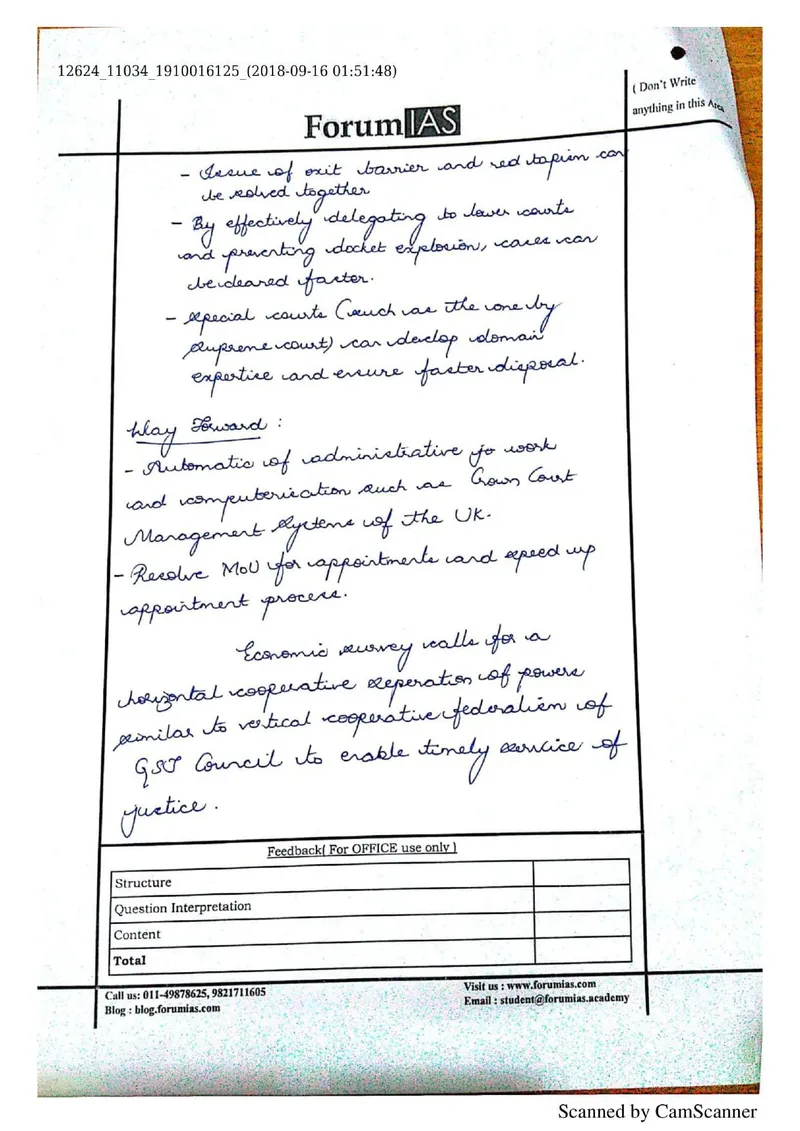 12624_11034_1910016125_(2018-09-16 01:51:48)
( Don't Write
anything in this Area
ForumIAS
- Issue of exit barrier and red tapism can
be solved together
- By effectively delegating to lower courts
and preventing docket explosion, cases can
be cleared faster.
- special courts (such as the one by
supreme court) can develop domain
expertise and ensure faster disposal.
Way Forward :
- Automatic of administrative jo work
and computerisation such as Crown Court
Management Systems of the UK.
- Resolve MoU for appointments and speed up
appointment process.
Economic survey calls for a
horizontal cooperative seperation of powers
similar to vertical cooperative federalism of
GST Council to enable timely service of
justice.
Feedback( For OFFICE use only )
Structure
Question Interpretation
Content
Total
Call us: 011-49878625, 9821711605
Blog : blog.forumias.com
Visit us : www.forumias.com
Email : student@forumias.academy
Scanned by CamScanner